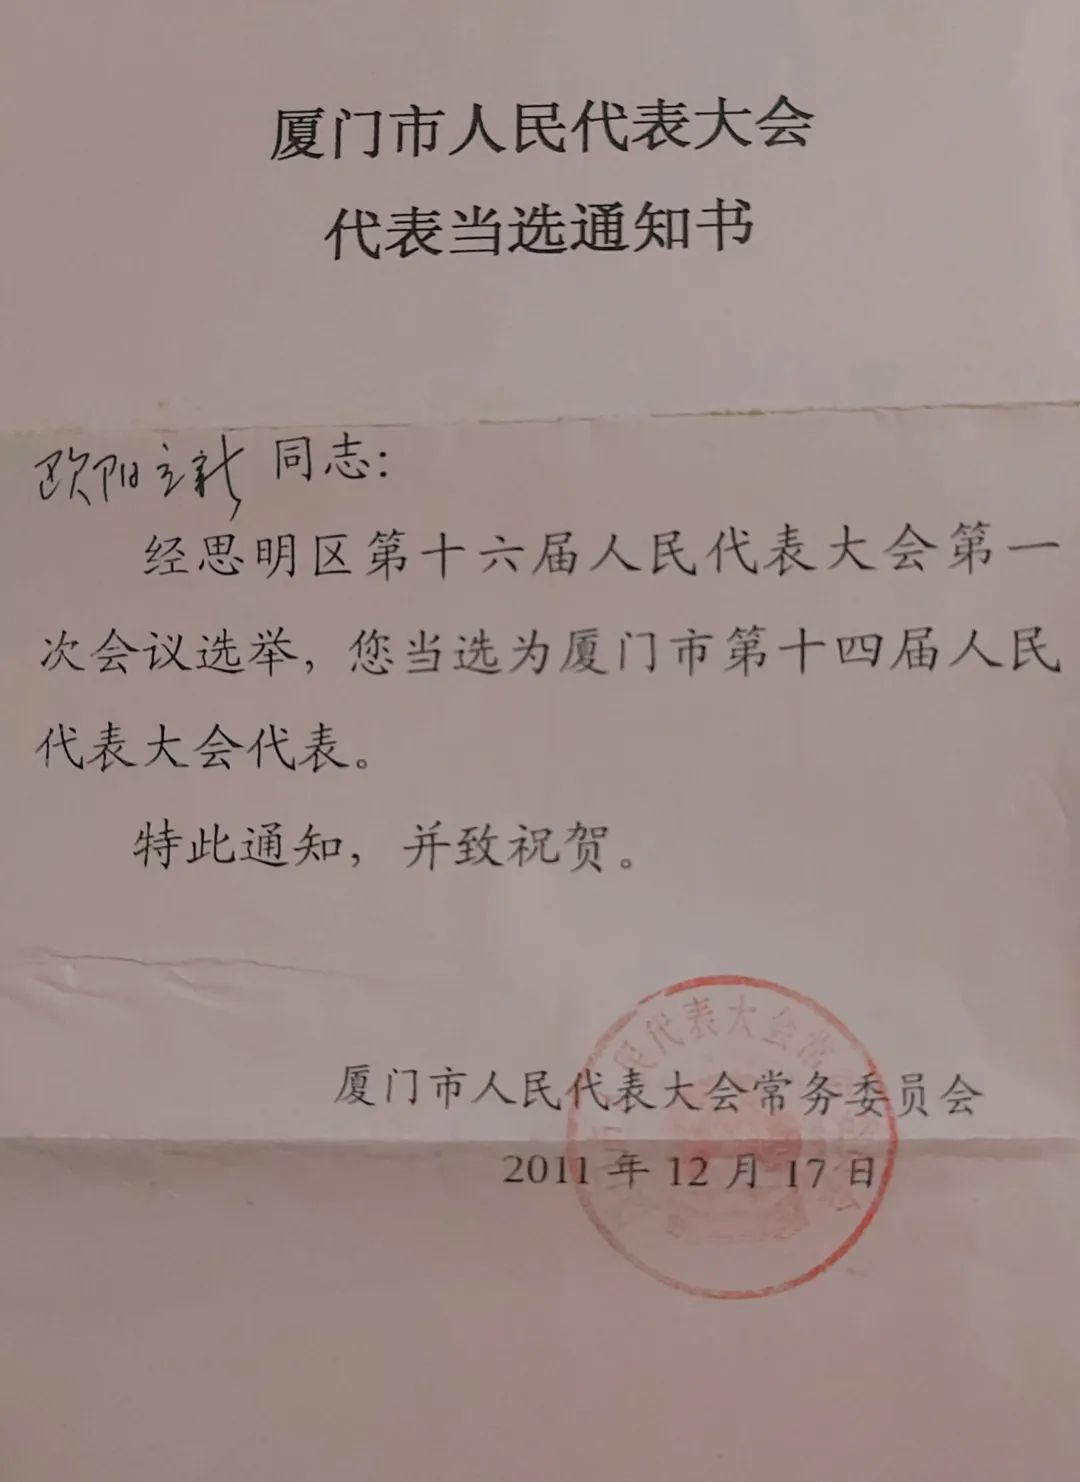 厦门市人民代表大会
代表当选通知书
欧阳立新 同志：
经思明区第十六届人民代表大会第一
次会议选举，您当选为厦门市第十四届人民
代表大会代表。
特此通知，并致祝贺。
民代表大会常
厦门市人民代表大会常务委员会
2011 年 12 月 17 日